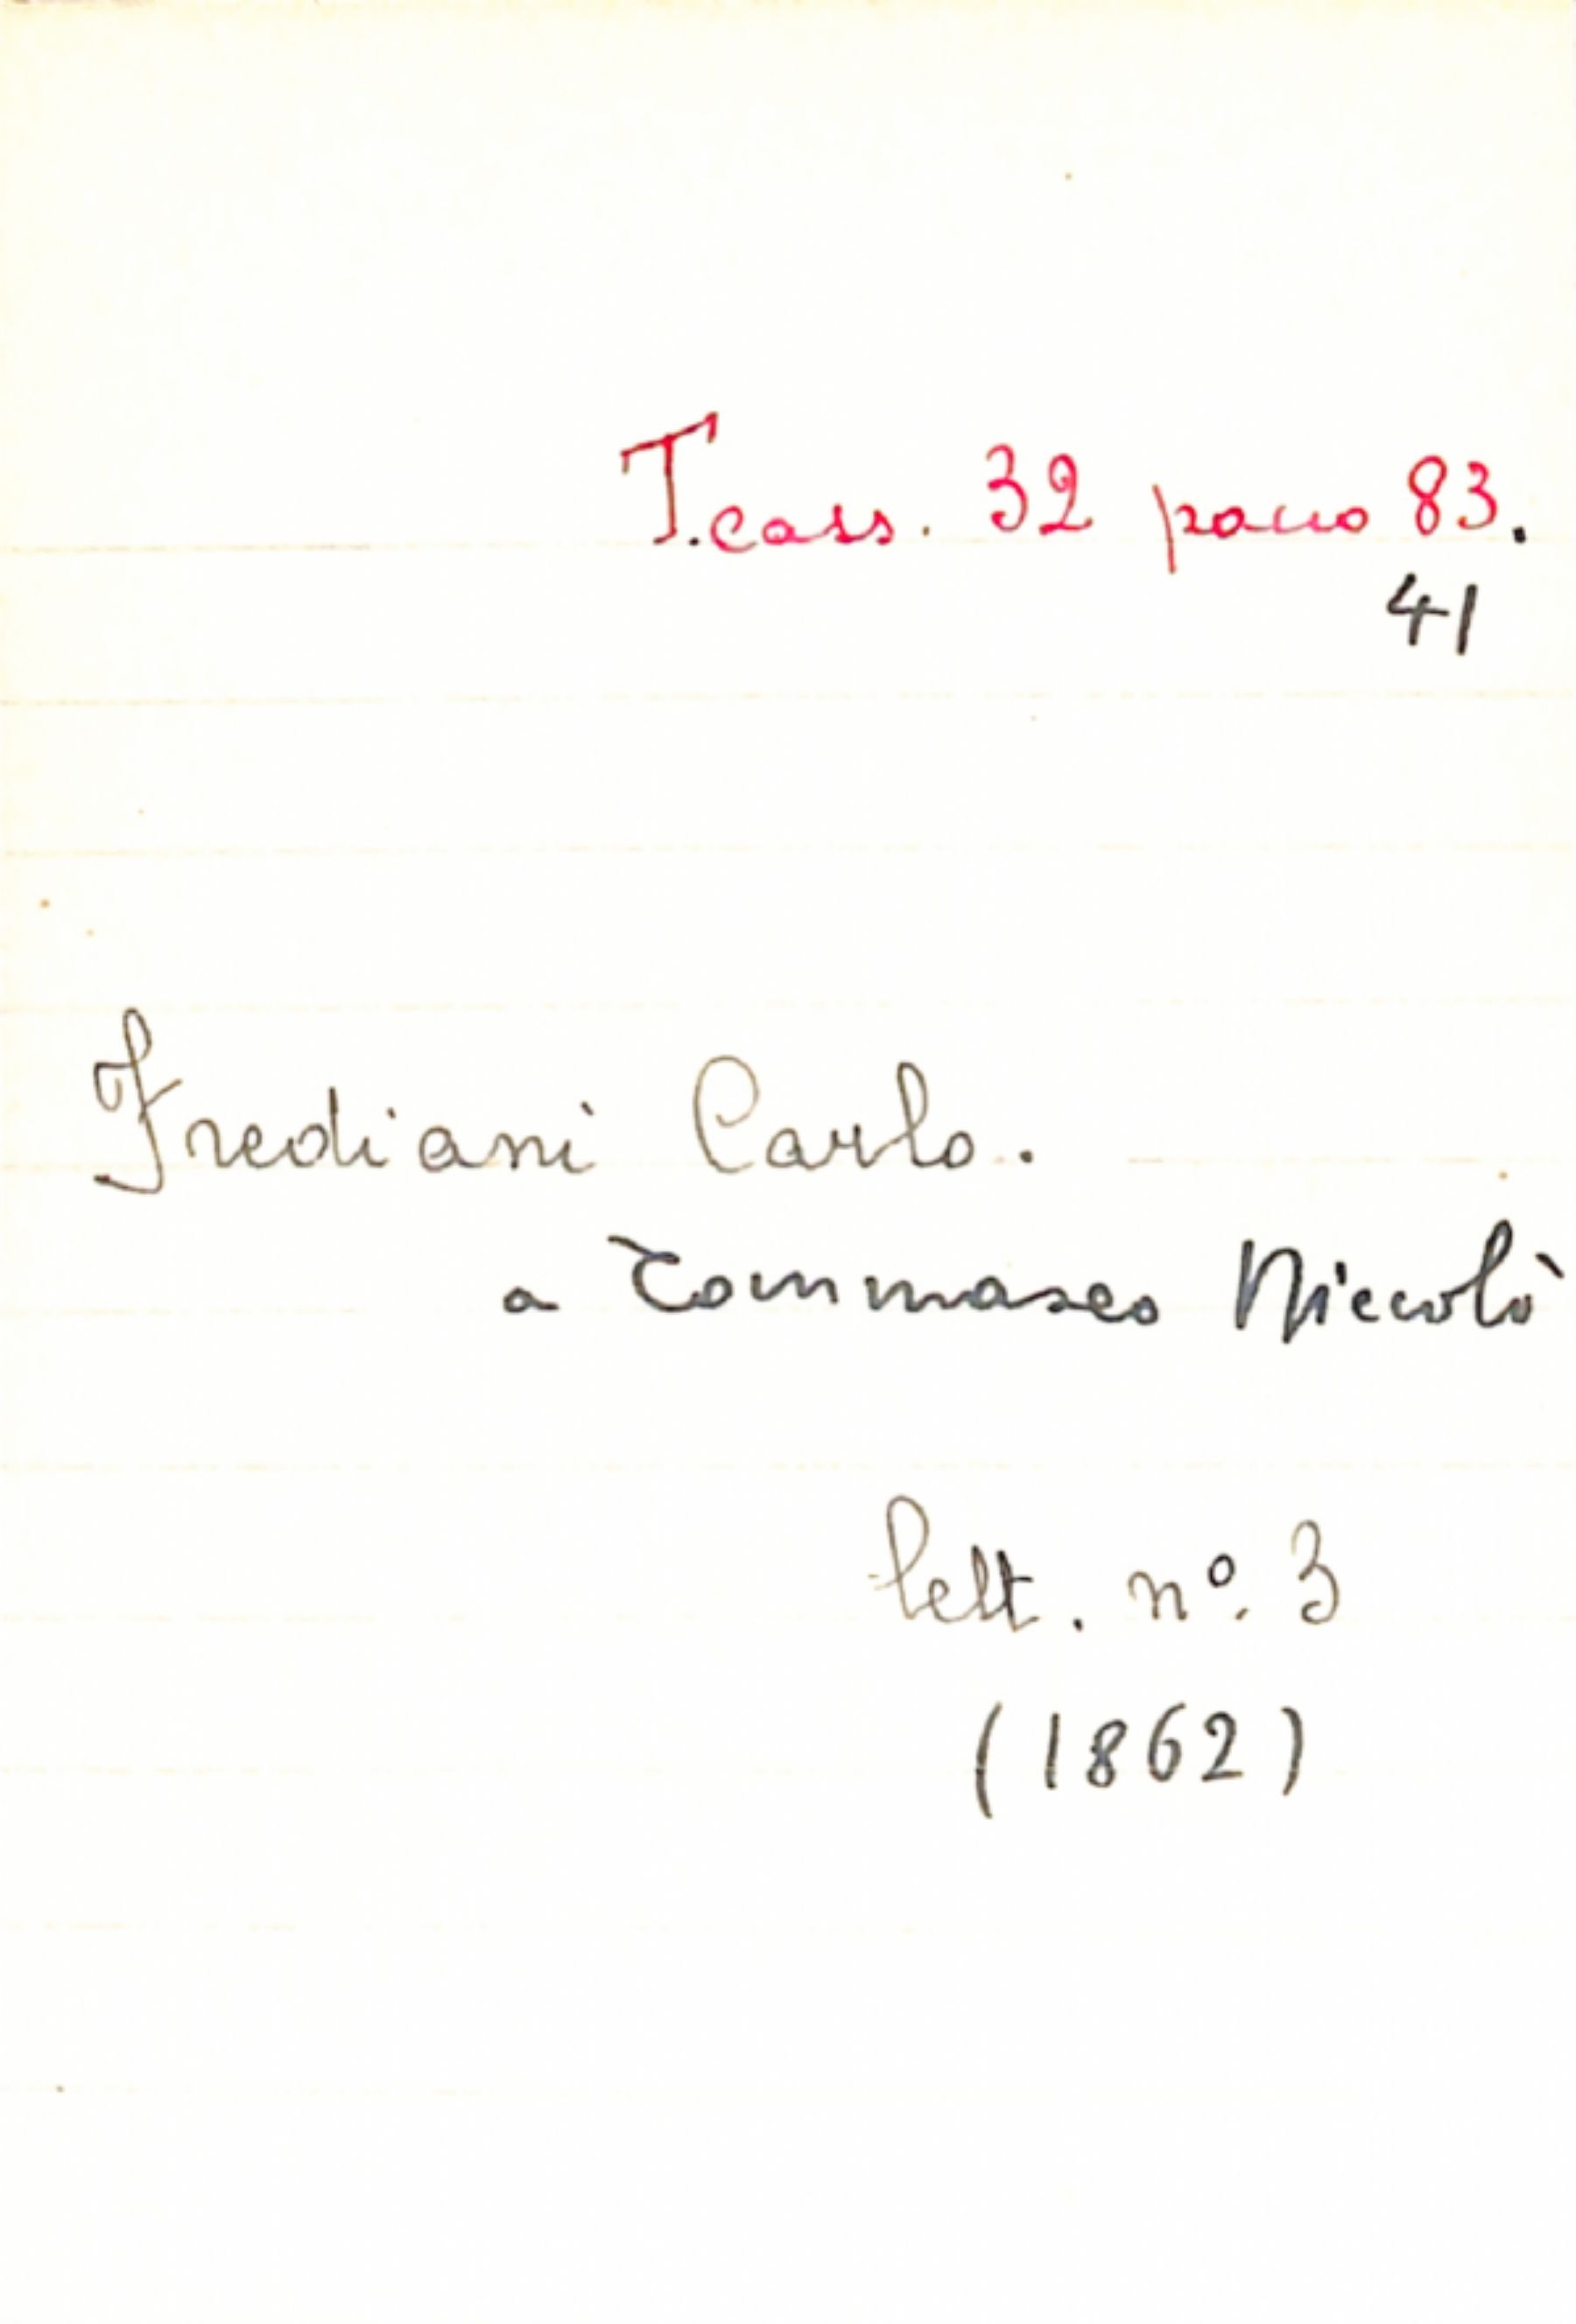 T. cass. 32 pacco 83.
41
Frediani Carlo.
a Tommaseo Niccolò
lett. nº. 3
(1862)